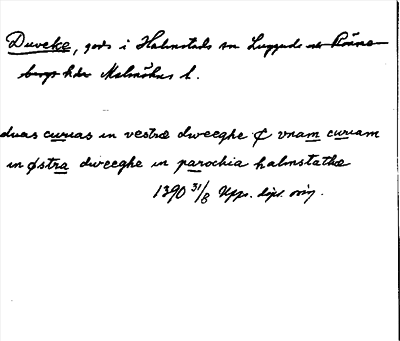 Duveke, gods i Halmstads sn Luggude och Rönne-
bergs hder Malmöhus l.
duas curias in vestræ dweeghe & vnam curiam
in østra dweeghe in parochia halmstathæ
1390 31/8 Upps. dipl. orig.